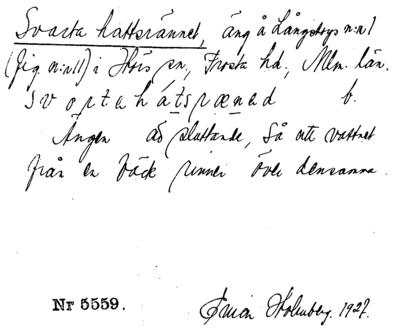 Svarta hattsrännet, äng å Långstorps n:o 1
(fig. n:o 11) i Hörs sn, Frosta hd., Mlm. län.
svortahátsrænəd b.
Ängen är sluttande, så att vattnet
från en bäck rinner över densamma.
Nr 5559. Holmberg. 1927.